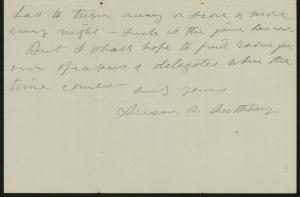 has to turn away a score & more
every night - such is the jam here now.
But I shall hope to find room for
our speakers & delegates when the
time comes -
Sinly yours
Susan B. Anthony